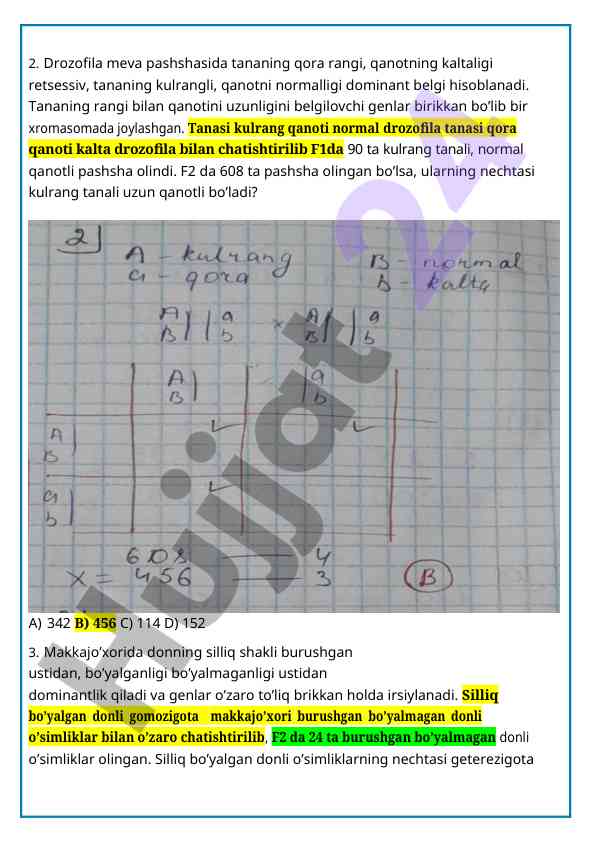 2. Drozofila meva pashshasida tananing qora rangi, qanotning kaltaligi
retsessiv, tananing kulrangli, qanotni normalligi dominant belgi hisoblanadi.
Tananing rangi bilan qanotini uzunligini belgilovchi genlar birikkan bo’lib bir
xromasomada joylashgan. Tanasi kulrang qanoti normal drozofila tanasi qora
qanoti kalta drozofila bilan chatishtirilib F1da 90 ta kulrang tanali, normal
qanotli pashsha olindi. F2 da 608 ta pashsha olingan bo’lsa, ularning nechtasi
kulrang tanali uzun qanotli bo’ladi?
2
A – kulrang B – normal
a – qora b – kalta
A a × A a
B b B b
A a
B b
A
B
a
b
608 —— 4
x = 456 —— 3 B
Hujjat 24
A) 342 B) 456 C) 114 D) 152
3. Makkajo’xorida donning silliq shakli burushgan
ustidan, bo’yalganligi bo’yalmaganligi ustidan
dominantlik qiladi va genlar o’zaro to’liq brikkan holda irsiylanadi. Silliq
bo’yalgan donli gomozigota makkajo’xori burushgan bo’yalmagan donli
o’simliklar bilan o’zaro chatishtirilib, F2 da 24 ta burushgan bo’yalmagan donli
o’simliklar olingan. Silliq bo’yalgan donli o’simliklarning nechtasi geterezigota